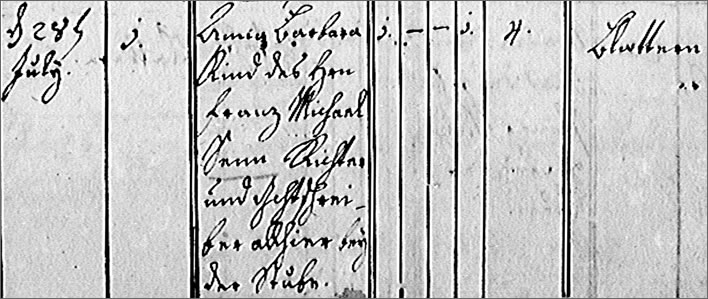 d 28t
July.
1.
Anna Barbara
Kind des Hrn
Franz Michael
Senn Richter
und Gchtschrei-
ber allhier bey
der Stube.
1. — — 1. 4.
Blattern